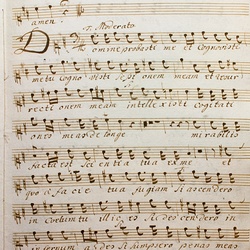 amen.
T. Moderato
Domine probasti me et Cognovisti
me tu Cogno visti sessi onem meam et resur
recti onem meam intellexisti Cogitati
ones meas de longe mirabilis
facta est Scientia tua ex me et
quo a facie tua fugiam Si ascendero
in Coelum tu illic es Si descendero in
infernum ades Si sumpsero penas meas